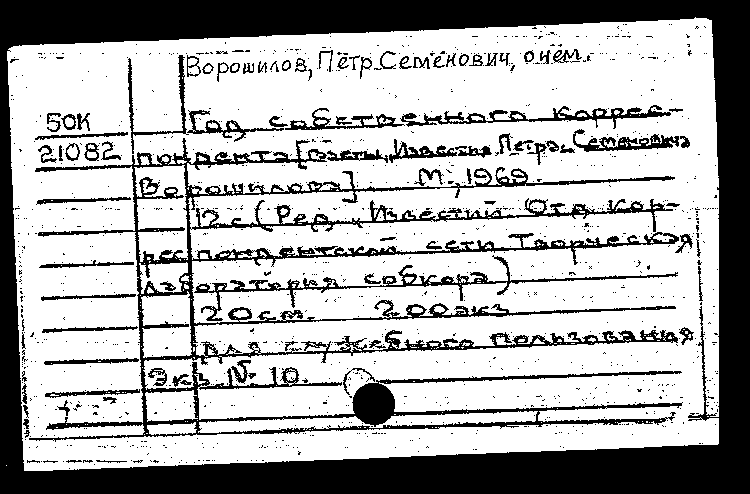 Ворошилов, Пётр Семёнович, о нём.
50К
21082
Год собственного коррес-
пондента [газеты „Известия" Петра Семеновича
Ворошилова]. М., 1969.
12 с (Ред. „Известий". Отд. кор-
респондентской сети. Творческая
лаборатория собкора)
20см. 200экз
Для служебного пользования
Экз. № 10.